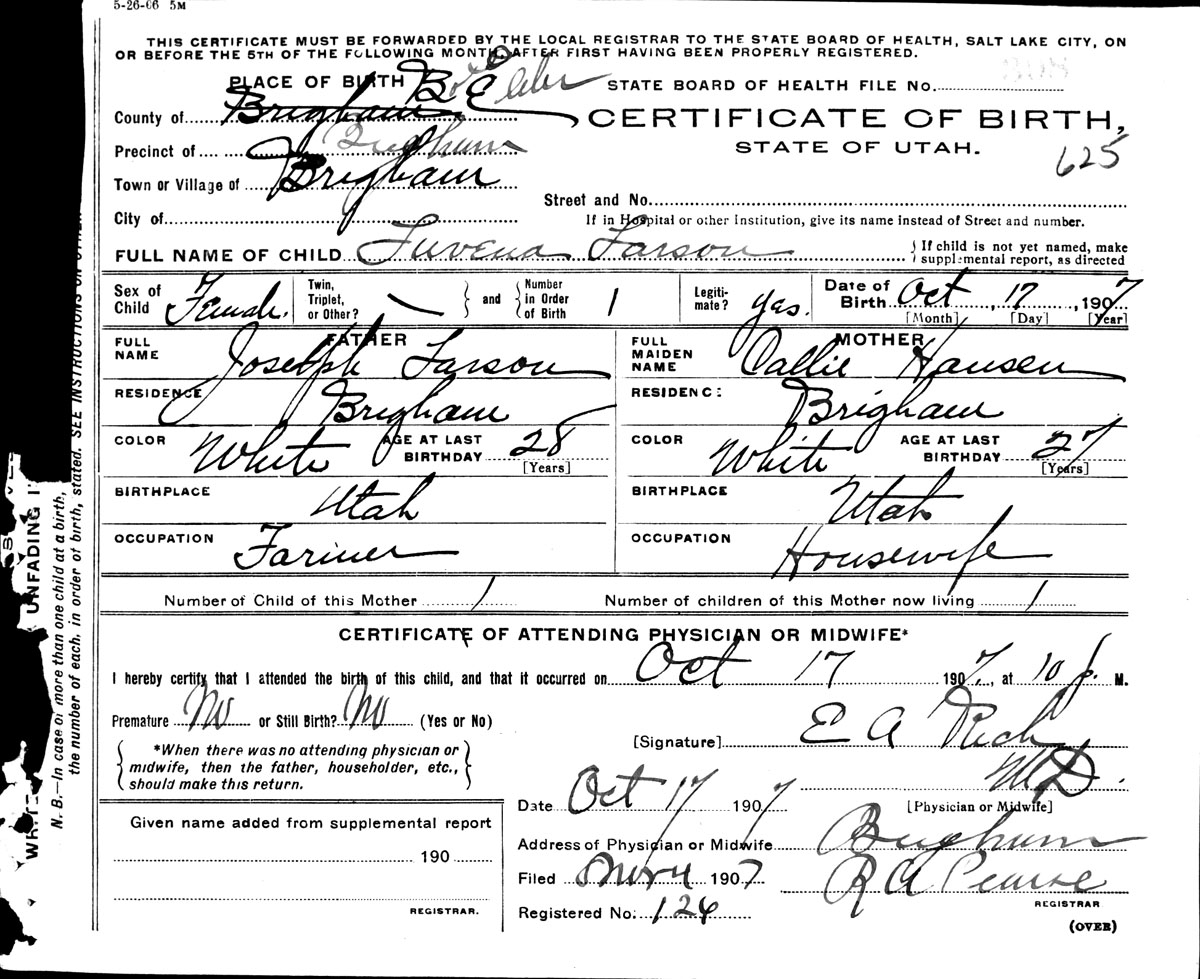 5-26-06 5M
THIS CERTIFICATE MUST BE FORWARDED BY THE LOCAL REGISTRAR TO THE STATE BOARD OF HEALTH, SALT LAKE CITY, ON
OR BEFORE THE 5TH OF THE FOLLOWING MONTH, AFTER FIRST HAVING BEEN PROPERLY REGISTERED.
PLACE OF BIRTH Box Elder STATE BOARD OF HEALTH FILE No.
County of Brigham
CERTIFICATE OF BIRTH,
Precinct of Brigham
STATE OF UTAH.
625
Town or Village of Brigham
Street and No.
City of
If in Hospital or other Institution, give its name instead of Street and number.
FULL NAME OF CHILD Luvena Larson
If child is not yet named, make
supplemental report, as directed
Sex of Child Female. Twin, Triplet, or Other? and Number in Order of Birth 1 Legiti-mate? yas. Date of Birth Oct, 17, 1907
[Month] [Day] [Year]
FATHER MOTHER
FULL NAME Joseph Larson FULL MAIDEN NAME Callie Hansen
RESIDENCE Brigham RESIDENC: Brigham
COLOR White AGE AT LAST BIRTHDAY 28 [Years] COLOR White AGE AT LAST BIRTHDAY 27 [Years]
BIRTHPLACE Utah BIRTHPLACE Utah
OCCUPATION Farmer OCCUPATION Housewife
Number of Child of this Mother 1 Number of children of this Mother now living 1
CERTIFICATE OF ATTENDING PHYSICIAN OR MIDWIFE*
I hereby certify that I attended the birth of this child, and that it occurred on Oct 17 1907, at 10 p. M.
Premature No or Still Birth? No (Yes or No)
[Signature] E A Rich
MD.
*When there was no attending physician or
midwife, then the father, householder, etc.,
should make this return.
Date Oct 17 1907 [Physician or Midwife]
Given name added from supplemental report
190
REGISTRAR.
Address of Physician or Midwife Brigham
Filed Nov 4 1907 R A Pearse
REGISTRAR
Registered No. 124
(OVER)
N. B.—In case of more than one child at a birth,
the number of each, in order of birth, stated. SEE INSTRUCTIONS ON OTHER
UNFADING